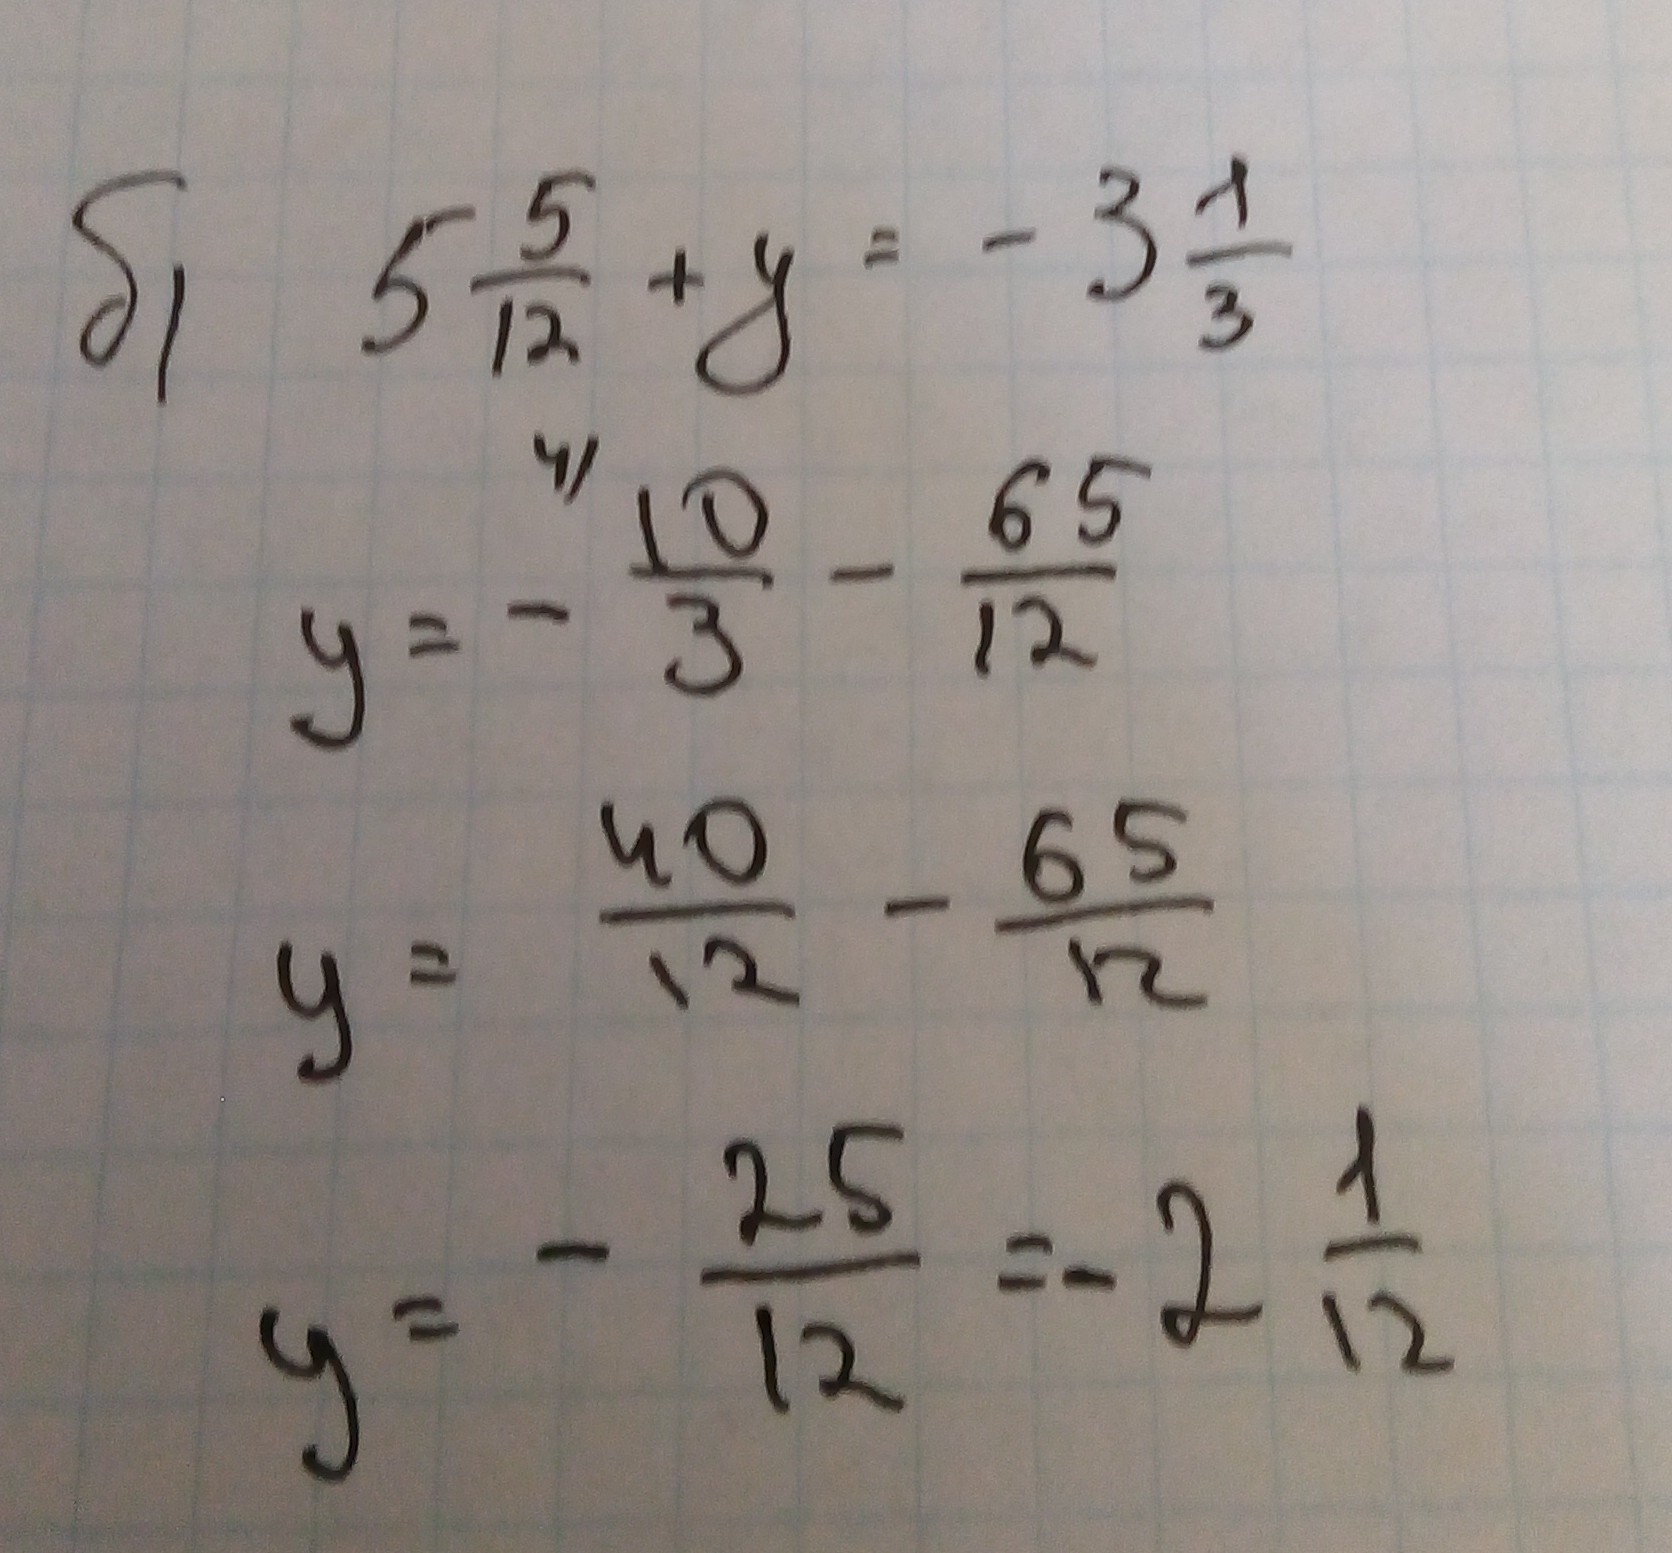 б) 5 5/12 + y = - 3 1/3
y = - 4) 10/3 - 65/12
y = 40/12 - 65/12
y = - 25/12 = - 2 1/12